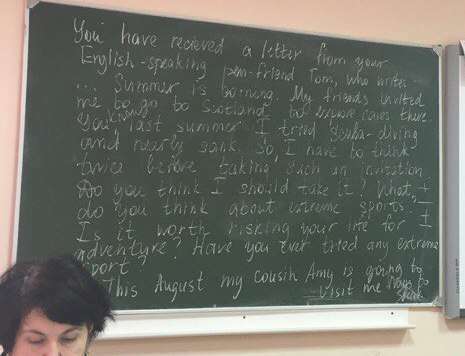 You have recieved a letter from your
English-speaking pen-friend Tom, who writes
... Summer is borning. My friends invited
me to go to Scotland to explore caves there.
You know, last summer I tried scuba-diving
and nearly sank. So, I have to think
twice before taking such an invitation.
Do you think I should take it? What
do you think about extreme sports?
Is it worth risking your life for
adventure? Have you ever tried any extreme
sport?
This August my cousin Amy is going to
visit me